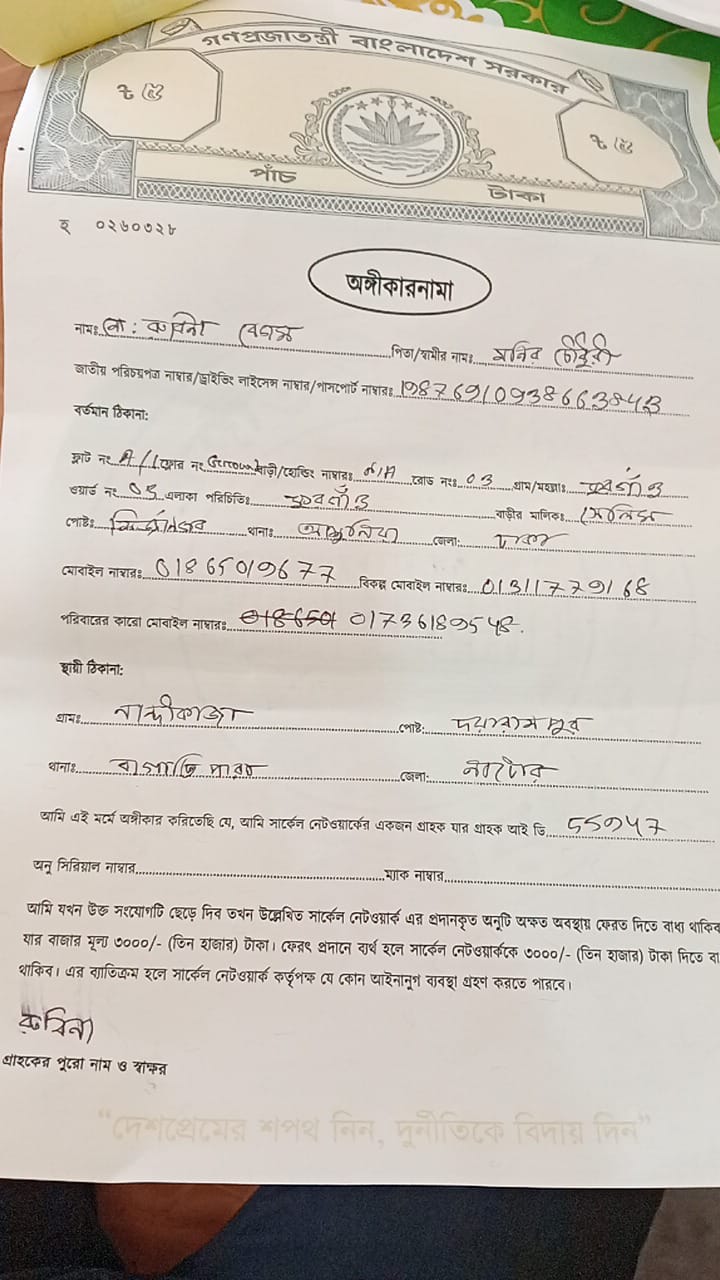 গণপ্রজাতন্ত্রী বাংলাদেশ সরকার
৳ ৫ ৳ ৫
পাঁচ টাকা
হ ০২৬০৩২৮
অঙ্গীকারনামা
নামঃ মোঃ রুবিনা বেগম পিতা/স্বামীর নামঃ মনির চৌধুরী
জাতীয় পরিচয়পত্র নাম্বার/ড্রাইভিং লাইসেন্স নাম্বার/পাসপোর্ট নাম্বারঃ
বর্তমান ঠিকানা:
ফ্লাট নং A/1 ফ্লোর নং Ground বাড়ী/হোল্ডিং নাম্বারঃ N/A রোড নংঃ 03 গ্রাম/মহল্লাঃ
ওয়ার্ড নং 05 এলাকা পরিচিতিঃ বাড়ীর মালিকঃ সেলিম
পোষ্টঃ থানাঃ আশুলিয়া জেলা: ঢাকা
মোবাইল নাম্বারঃ 01865019677 বিকল্প মোবাইল নাম্বারঃ 01311779168
পরিবারের কারো মোবাইল নাম্বারঃ 01736189548.
স্থায়ী ঠিকানা:
গ্রামঃ পোষ্ট: দয়ারামপুর
থানাঃ বাগাতিপাড়া জেলা: নাটোর
আমি এই মর্মে অঙ্গীকার করিতেছি যে, আমি সার্কেল নেটওয়ার্কের একজন গ্রাহক যার গ্রাহক আই ডি
অনু সিরিয়াল নাম্বার ম্যাক নাম্বার
আমি যখন উক্ত সংযোগটি ছেড়ে দিব তখন উল্লেখিত সার্কেল নেটওয়ার্ক এর প্রদানকৃত অনুটি অক্ষত অবস্থায় ফেরত দিতে বাধ্য থাকিব
যার বাজার মূল্য ৩০০০/- (তিন হাজার) টাকা। ফেরৎ প্রদানে ব্যর্থ হলে সার্কেল নেটওয়ার্ককে ৩০০০/- (তিন হাজার) টাকা দিতে বা
থাকিব। এর ব্যতিক্রম হলে সার্কেল নেটওয়ার্ক কর্তৃপক্ষ যে কোন আইনানুগ ব্যবস্থা গ্রহণ করতে পারবে।
রুবিনা
গ্রাহকের পুরো নাম ও স্বাক্ষর
“দেশপ্রেমের শপথ নিন, দুর্নীতিকে বিদায় দিন”